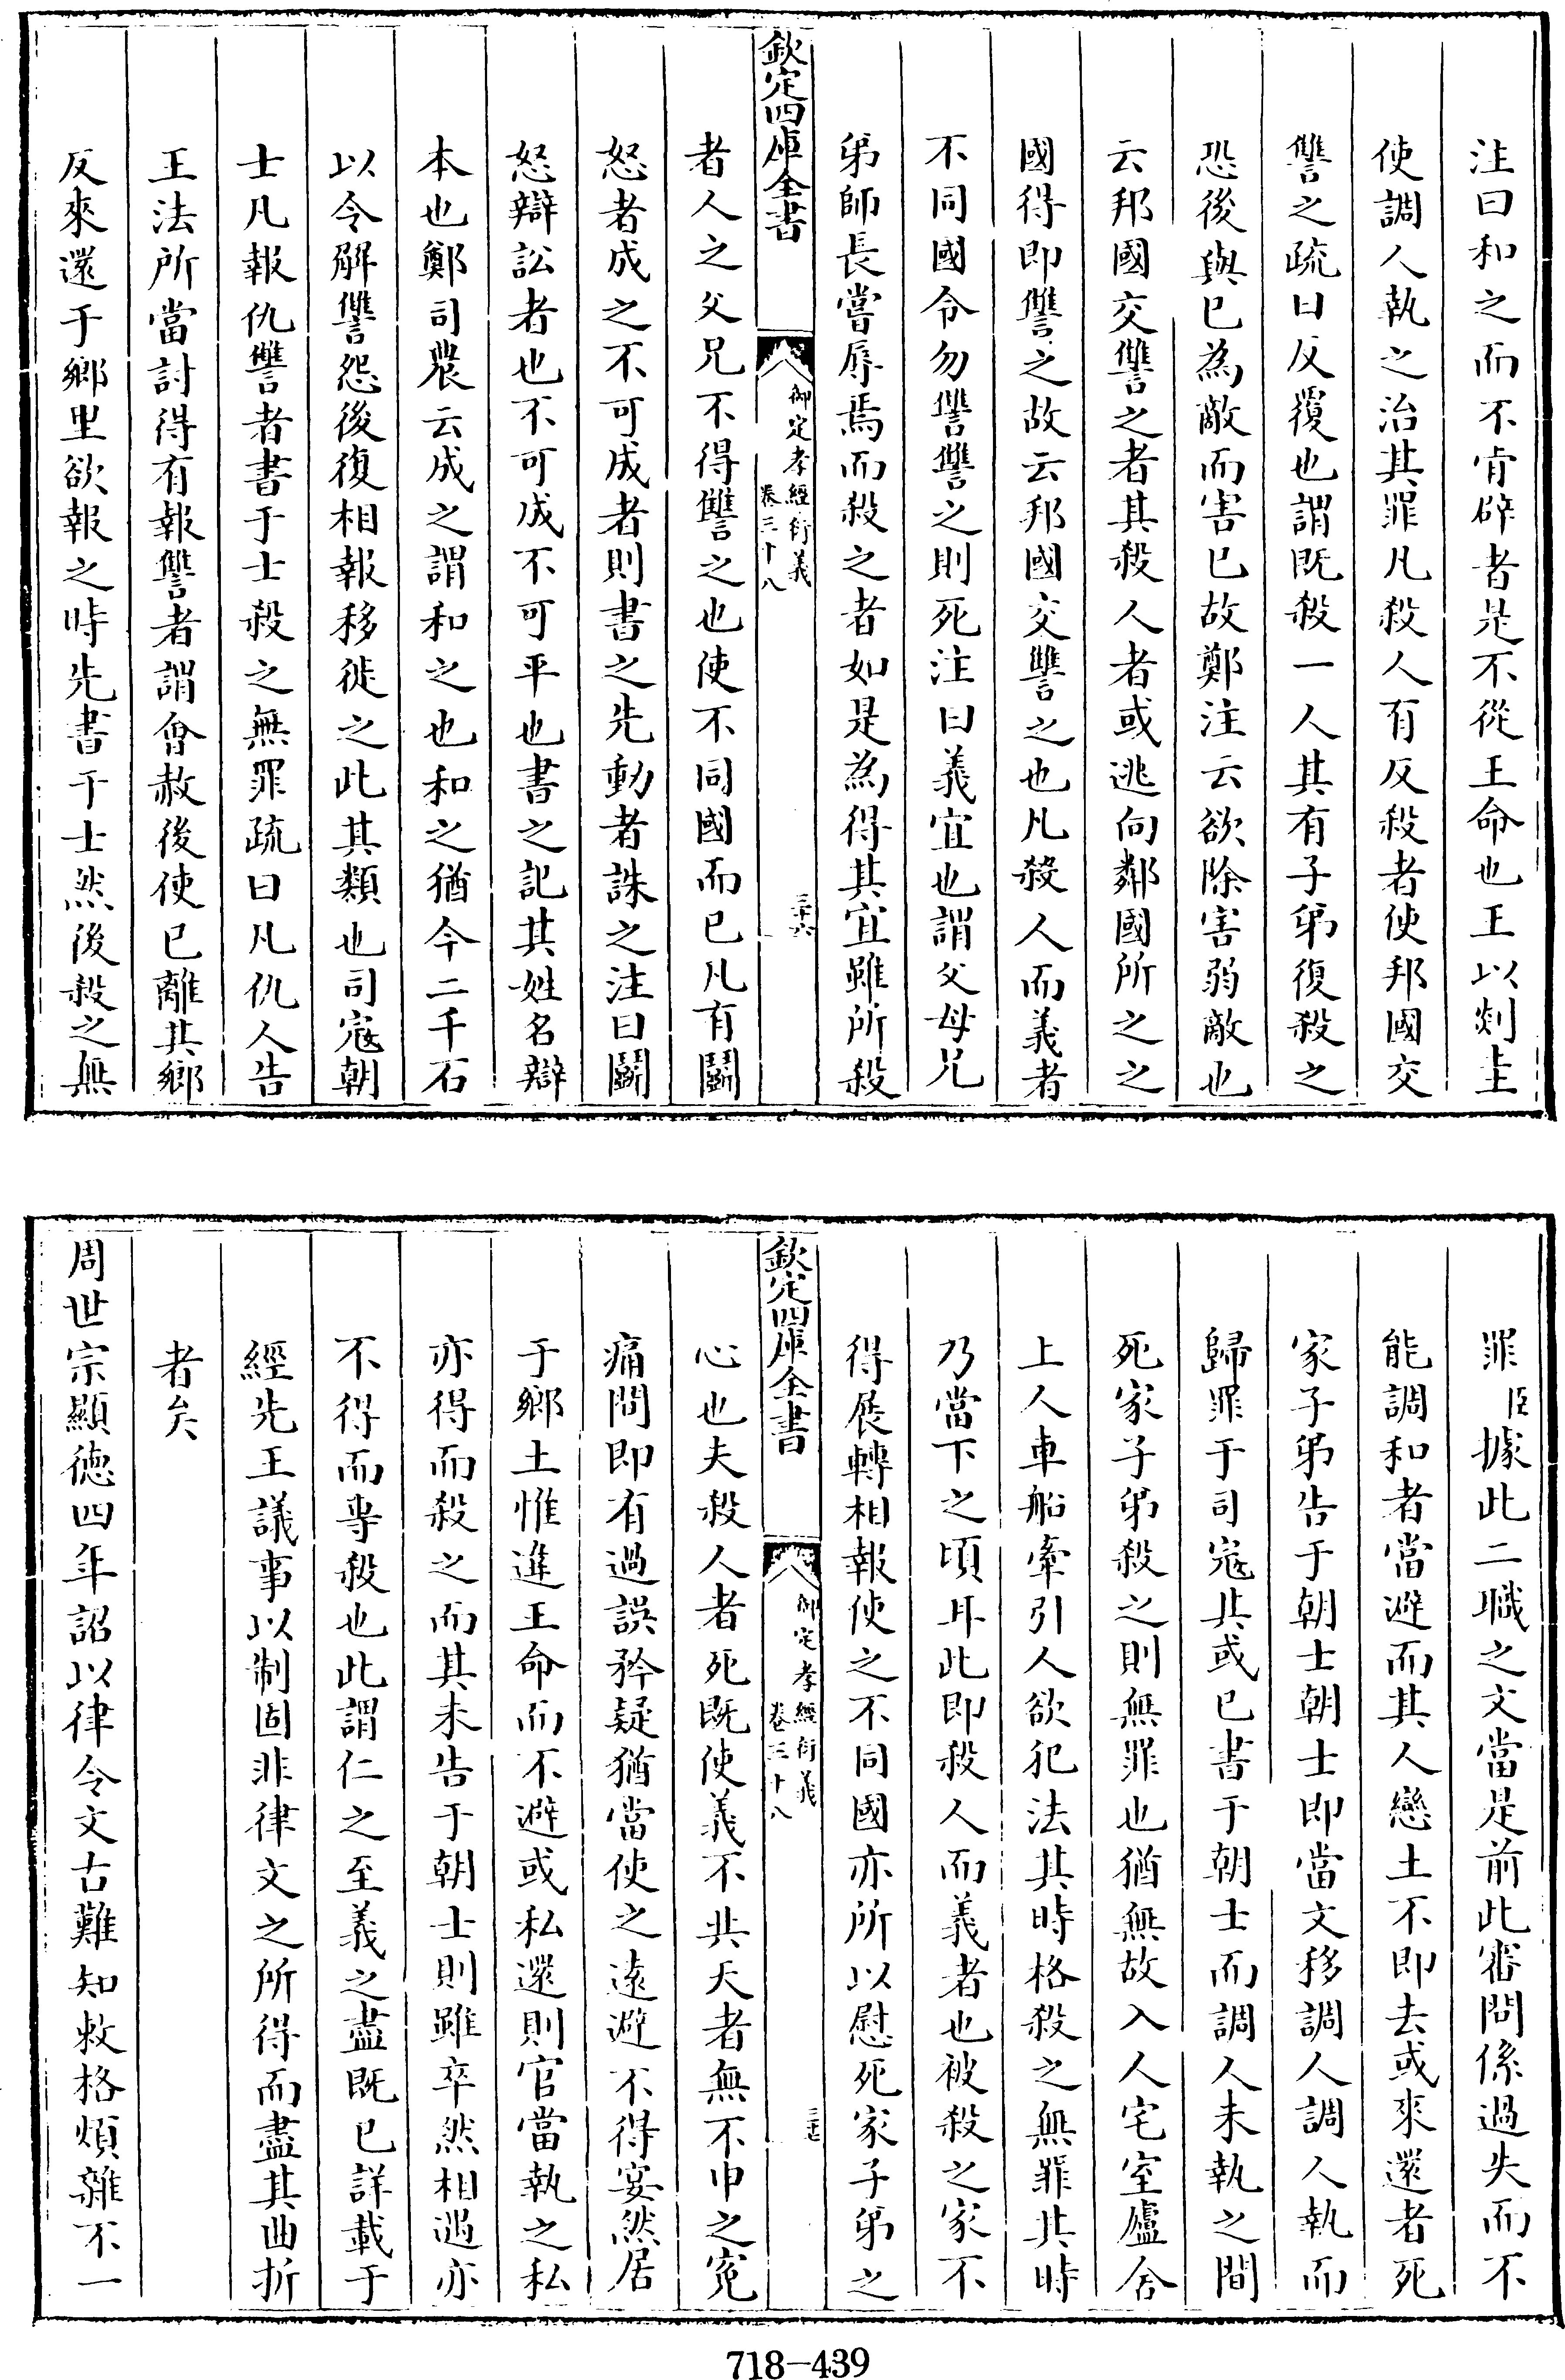 注曰和之而不肯辟者是不從王命也王以剡圭
使調人執之治其罪凡殺人有反殺者使邦國交
讐之疏曰反覆也謂既殺一人其有子弟復殺之
恐後與已為敵而害已故鄭注云欲除害弱敵也
云邦國交讐之者其殺人者或逃向鄰國所之之
國得即讐之故云邦國交讐之也凡殺人而義者
不同國令勿讐讐之則死注曰義宜也謂父母兄
弟師長嘗辱焉而殺之者如是為得其宜雖所殺
欽定四庫全書
御定孝經衍義
卷三十八
三十六
者人之父兄不得讐之也使不同國而已凡有鬭
怒者成之不可成者則書之先動者誅之注曰鬭
怒辯訟者也不可成不可平也書之記其姓名辯
本也鄭司農云成之謂和之也和之猶今二千石
以令解讐怨後復相報移徙之此其類也司寇朝
士凡報仇讐者書于士殺之無罪疏曰凡仇人告
王法所當討得有報讐者謂會赦後使已離其鄉
反來還于鄉里欲報之時先書于士然後殺之無
罪臣據此二職之文當是前此審問係過失而不
能調和者當避而其人戀土不即去或來還者死
家子弟告于朝士朝士即當文移調人調人執而
歸罪于司寇其或已書于朝士而調人未執之間
死家子弟殺之則無罪也猶無故入人宅室廬舍
上人車船牽引人欲犯法其時格殺之無罪其時
乃當下之頃耳此即殺人而義者也被殺之家不
得展轉相報使之不同國亦所以慰死家子弟之
欽定四庫全書
御定孝經衍義
卷三十八
三十七
心也夫殺人者死既使義不共天者無不申之寃
痛問即有過誤矜疑猶當使之遠避不得宴然居
于鄉土惟進王命而不避或私還則官當執之私
亦得而殺之而其未告于朝士則雖卒然相遇亦
不得而専殺也此謂仁之至義之盡既已詳載于
經先王議事以制固非律文之所得而盡其曲折
者矣
周世宗顯德四年詔以律令文古難知敕格煩雜不一
718-439